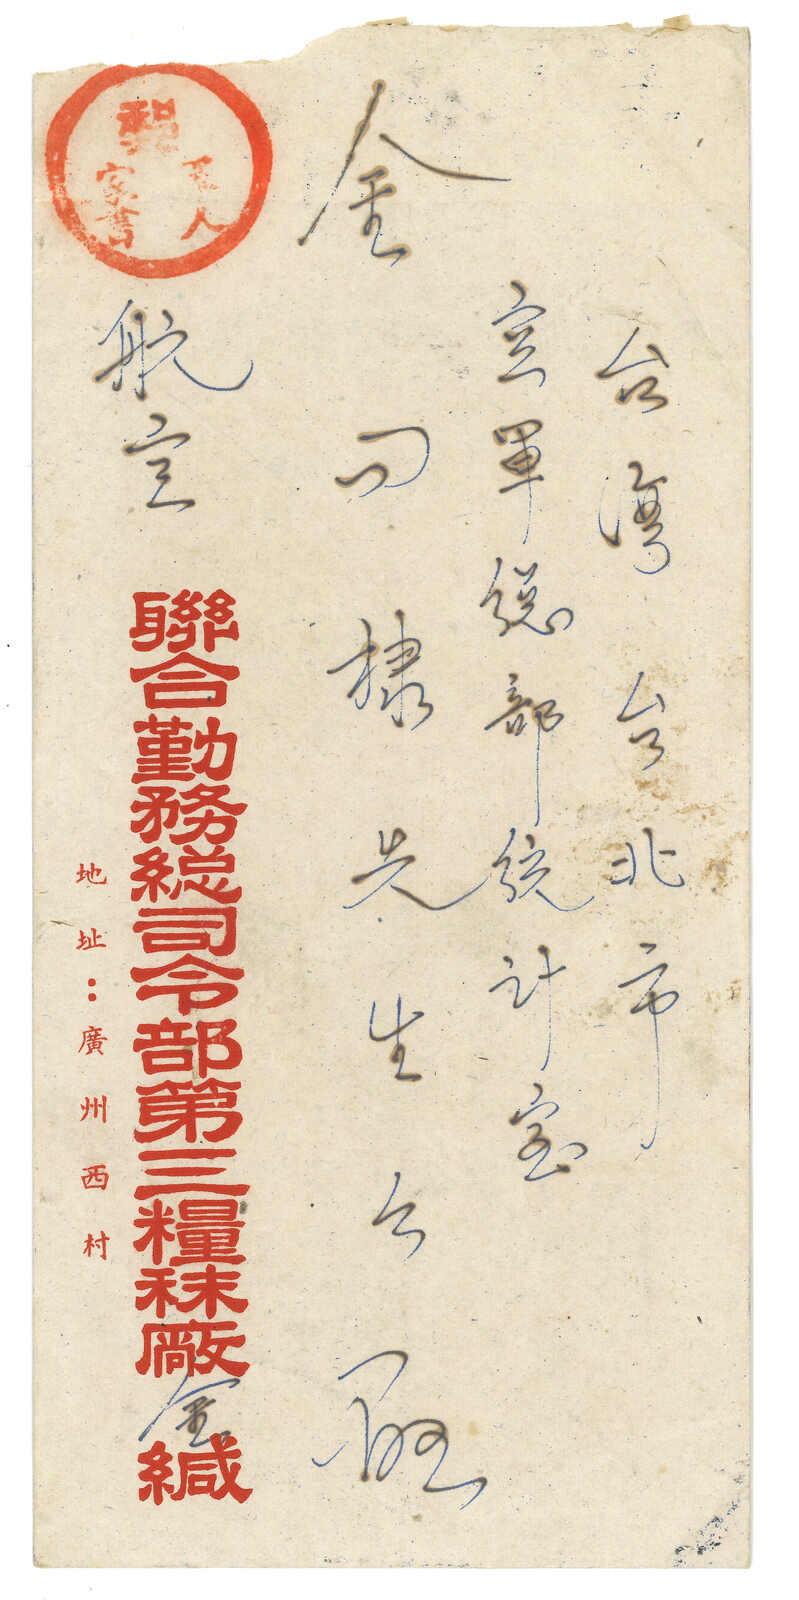 台灣台北市
空軍總部統計室
金問棣先生公啟
郵
軍人
家書
航空
聯合勤務總司令部第三糧秣廠金緘
地址：廣州西村